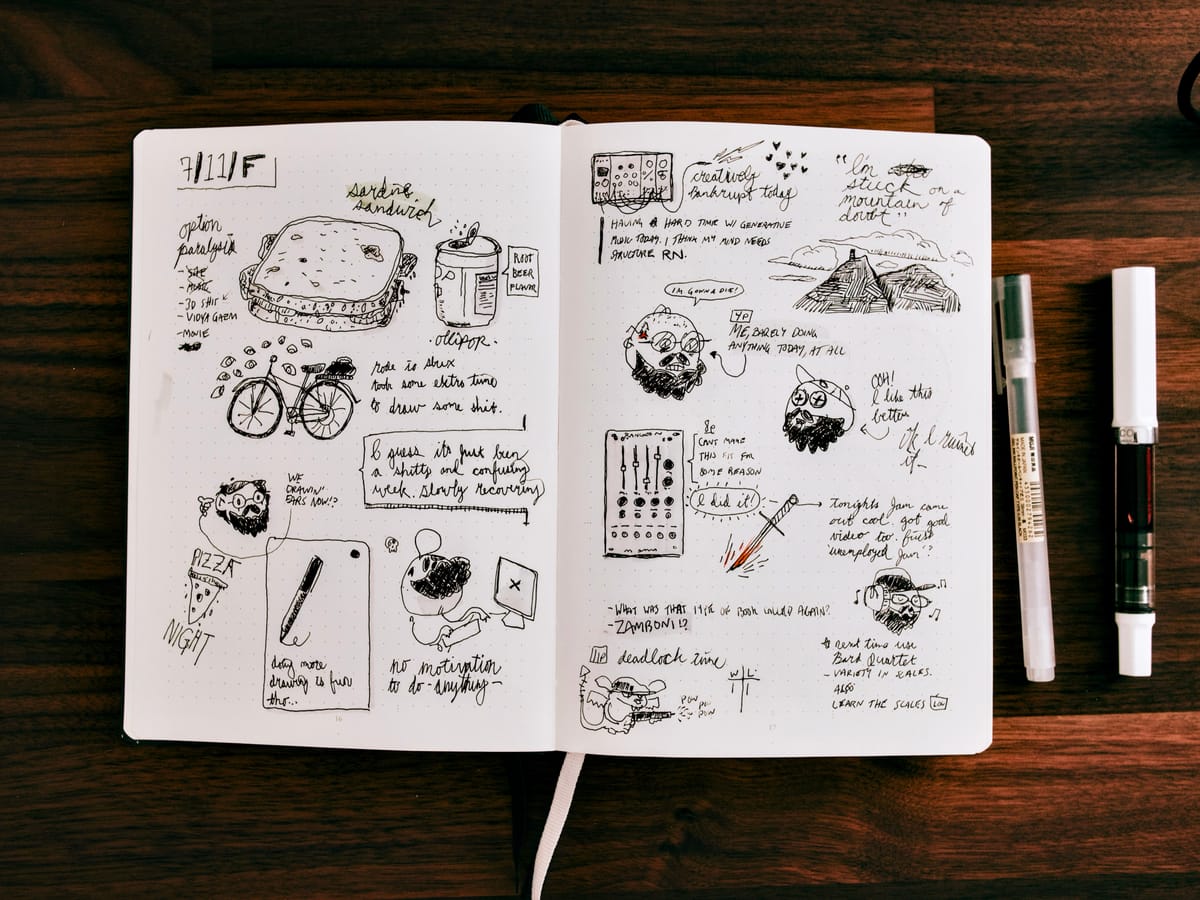 7/11/F
sardine
sandwich
option
paralysis
- MUSIC
- 3D SHIT
- VIDYA GAEM
- MOVIE
ROOT
BEER
FLAVOR
OLLIPOP.
rode to sbux
took some extra time
to draw some shit.
I guess it's just been
a shitty and confusing
week. slowly recovering
WE
DRAWIN'
EARS NOW!?
PIZZA
NIGHT
doing more
drawing is fun
tho...
X
no motivation
to do -anything-
16
creatively
bankrupt today
"I'm
stuck on a
mountain of
doubt"
HAVING A HARD TIME W/ GENERATIVE
MUSIC TODAY. I THINK MY MIND NEEDS
STRUCTURE RN.
I'M GONNA DIE!
4P
ME, BARELY DOING
ANYTHING TODAY, AT ALL
OOH!
I like this
better
I ruined
it-
8P
CAN'T MAKE
THIS FIT FOR
SOME REASON
I did it!
tonights Jam came
out cool. got good
video too. first
'unemployed jam'?
- WHAT WAS THAT TYPE OF BOOK CALLED AGAIN?
- ZAMBONI!?
11P deadlock time
W L
POW
PO
POW
to next time use
Bard Quartet
- VARIETY IN SCALES.
ALSO
LEARN THE SCALES LOL
17